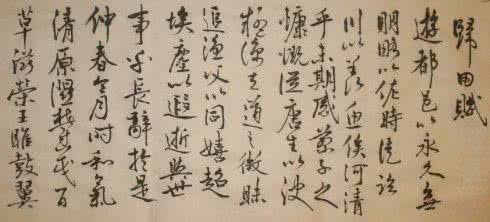 歸田賦
遊都邑以永久無
明略以佐時徒臨
川以羨魚俟河清
乎未期感蔡子之
慷慨從唐生以決
疑諒天道之微昧
追漁父以同嬉超
埃塵以遐逝與世
事乎長辭於是
仲春令月時和氣
清原隰鬱茂百
草滋榮王雎鼓翼